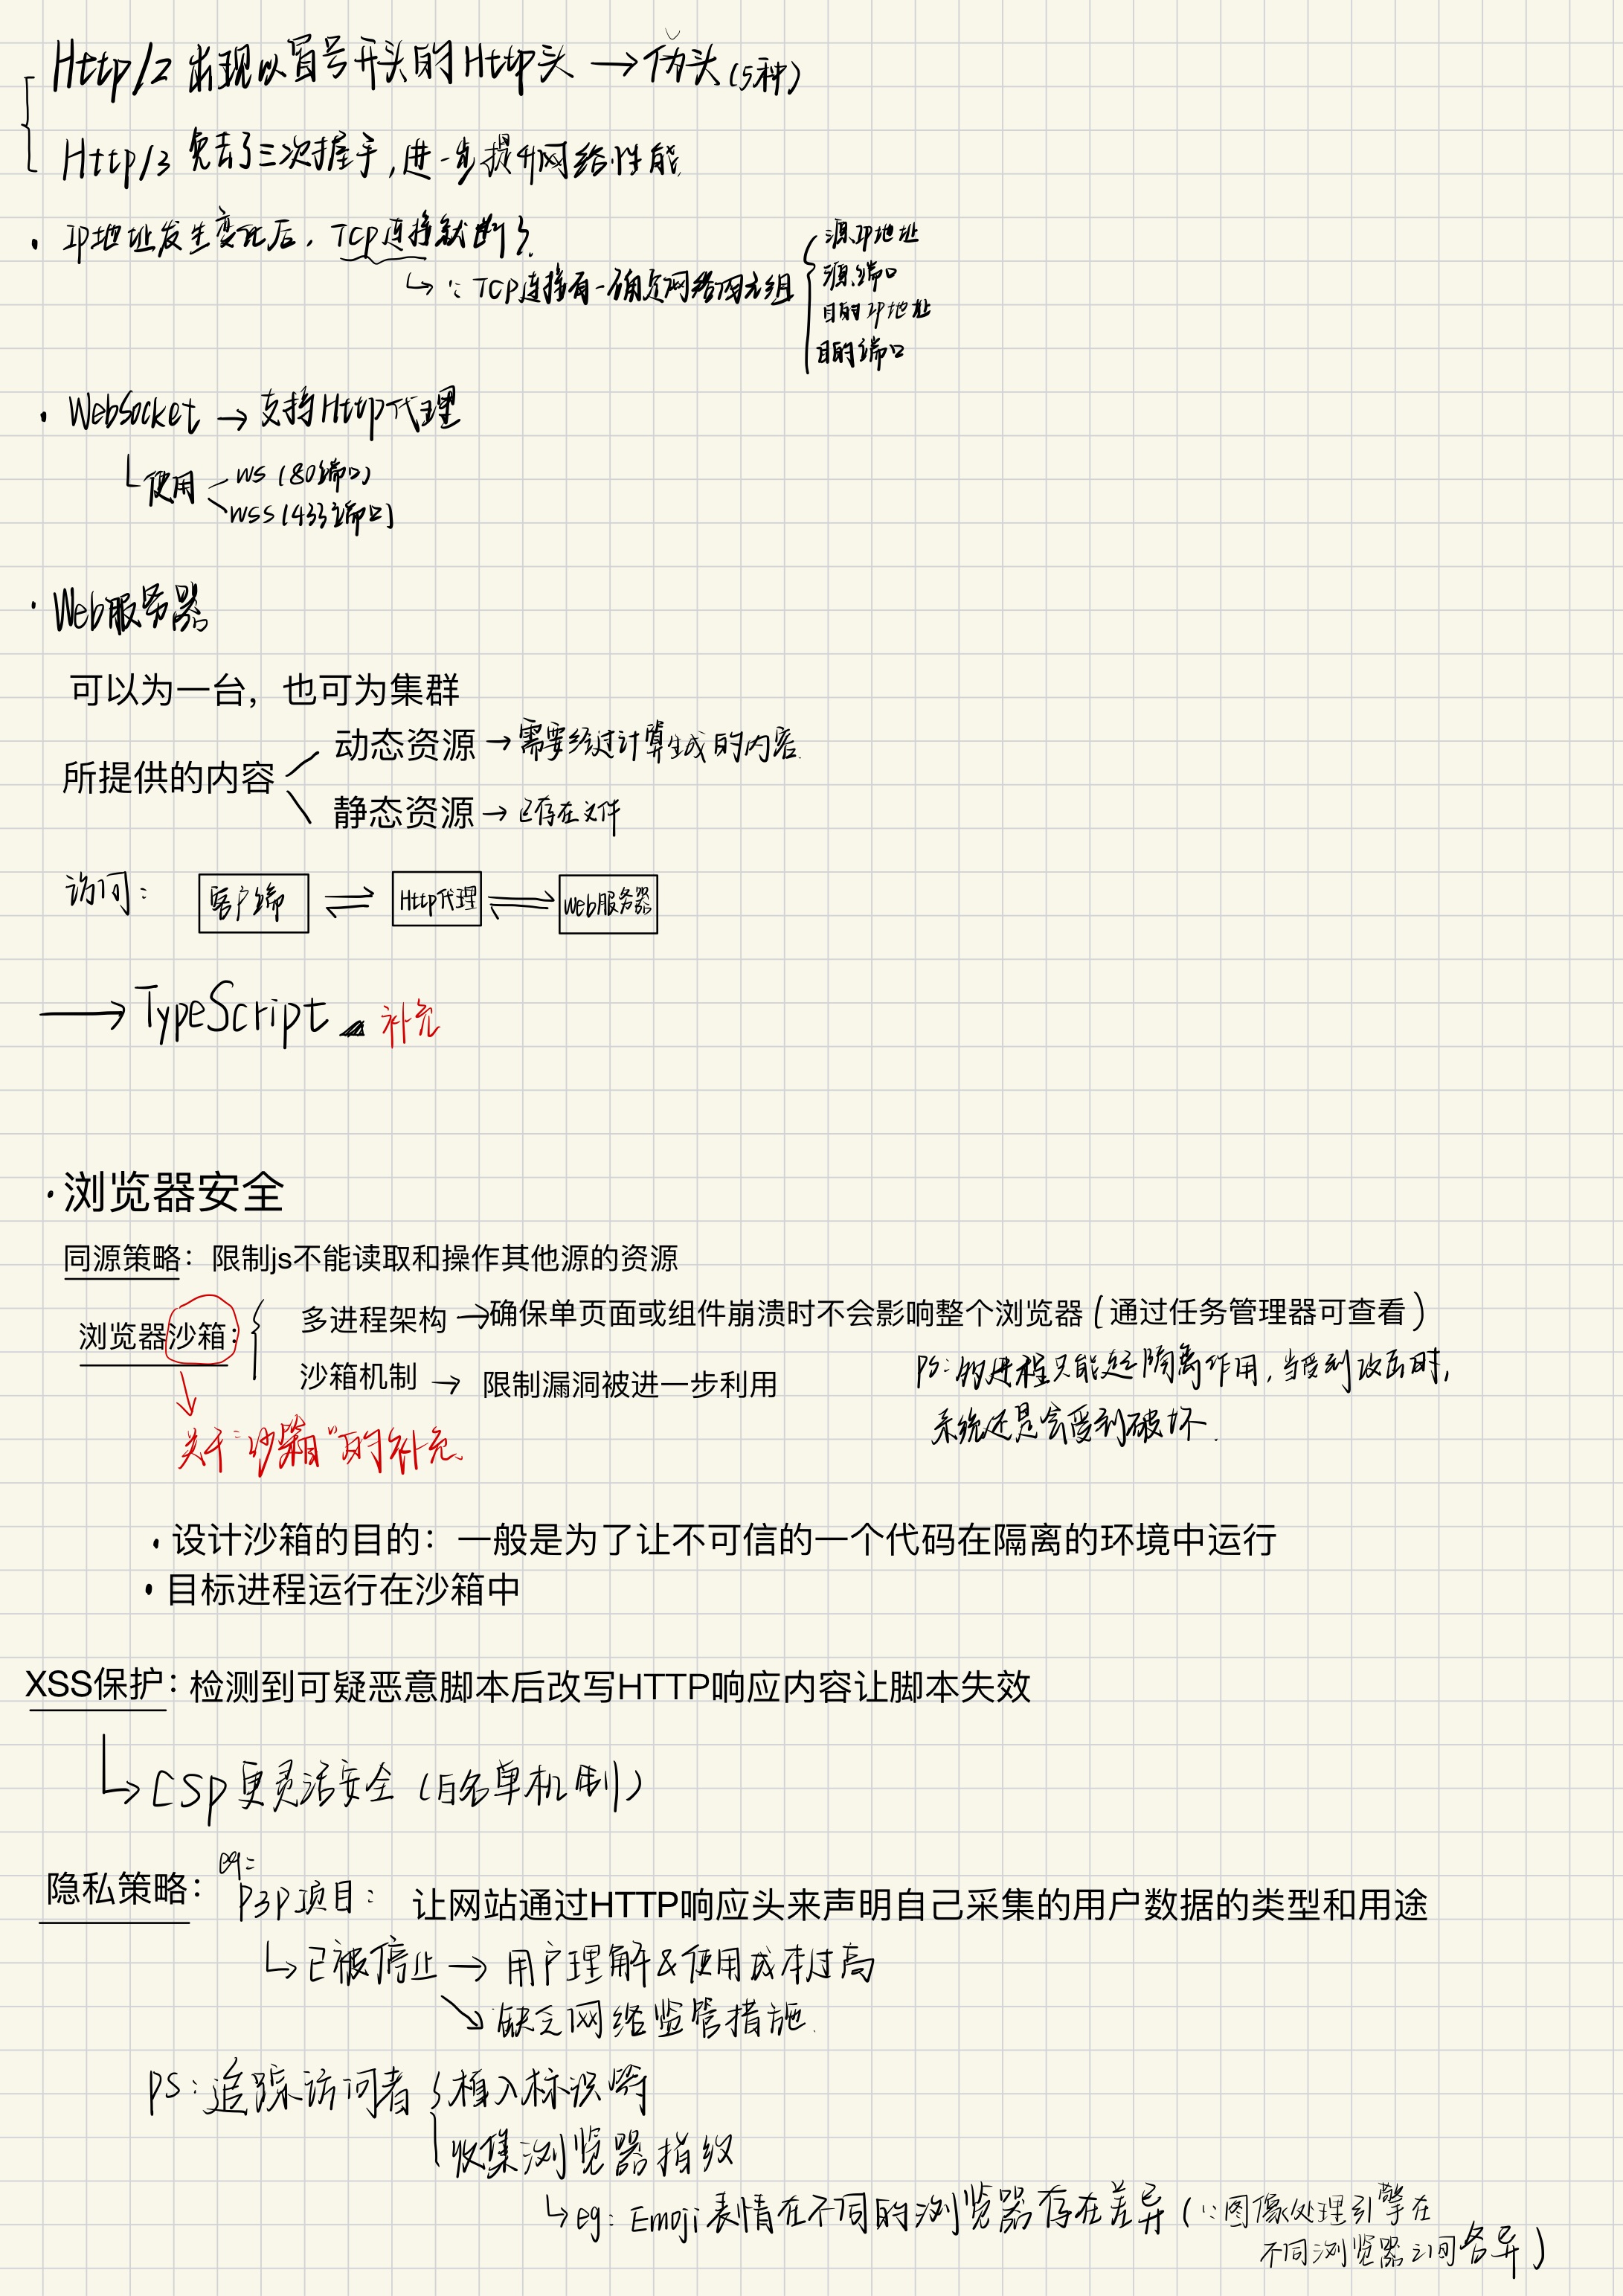 Http/2 出现以冒号开头的Http头 → 伪头(5种)
Http/3 免去了三次握手,进一步提升网络性能.
· IP地址发生变化后，TCP连接就断了.
↳ ∵ TCP连接有一确定网络四元组
源IP地址
源端口
目的IP地址
目的端口
· WebSocket → 支持Http代理
使用
WS (80端口)
WSS (433端口)
· Web服务器
可以为一台，也可为集群
所提供的内容
动态资源 → 需要经过计算生成的内容.
静态资源 → 已存在文件
访问: 客户端 Http代理 Web服务器
→ TypeScript 补充
· 浏览器安全
同源策略：限制js不能读取和操作其他源的资源
浏览器沙箱:
多进程架构 → 确保单页面或组件崩溃时不会影响整个浏览器 (通过任务管理器可查看)
沙箱机制 → 限制漏洞被进一步利用
PS: 多进程只能起隔离作用, 当受到攻击时,
系统还是会受到破坏.
关于"沙箱"的补充
· 设计沙箱的目的：一般是为了让不可信的一个代码在隔离的环境中运行
· 目标进程运行在沙箱中
XSS保护: 检测到可疑恶意脚本后改写HTTP响应内容让脚本失效
↳ CSP 更灵活安全 (白名单机制)
隐私策略： eg: P3P项目: 让网站通过HTTP响应头来声明自己采集的用户数据的类型和用途
↳ 已被停止 → 用户理解&使用成本过高
↘ 缺乏网络监管措施.
PS: 追踪访问者
植入标识符
收集浏览器指纹
↳ eg: Emoji表情在不同的浏览器存在差异 (∵图像处理引擎在
不同浏览器之间各异)